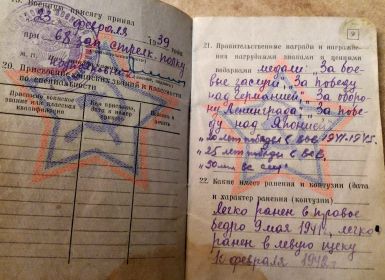 19. Военную присягу принял
23 февраля 1939 года
при 68 зап. стрелк. полку
М. П.
20. Присвоение воинских званий и классности
по специальности
Присвоено воинское
звание или классная
квалификация
Кем присвоено,
дата и номер
приказа
Подпись и
печать
9
21. Правительственные награды и награжде-
ния нагрудными знаками и ценными
подарками медали: „За бое-
вые заслуги", „За победу
над Германией", „За оборо-
ну Ленинграда", „За побе-
ду над Японией"
„20 лет победы в ВОВ 1941-1945.
„25 лет победы в ВОВ,
„50 лет
22. Какие имеет ранения и контузии (дата
и характер ранения (контузии)
Легко ранен в правое
бедро 9 мая 1941., легко
ранен в левую щеку
10 февраля 1942 г.